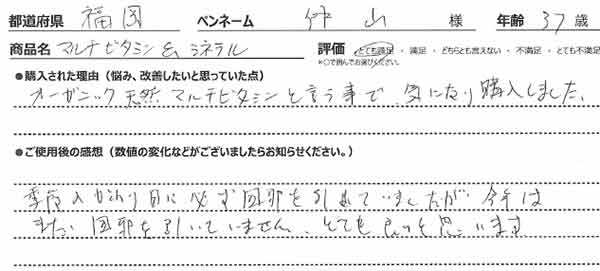 都道府県 福岡 ペンネーム 竹山 様 年齢 37 歳
商品名 マルチビタミン & ミネラル 評価 とても満足 ・ 満足 ・ どちらとも言えない ・ 不満足 ・ とても不満足
*○で囲んでお選びください。
●購入された理由（悩み、改善したいと思っていた点）
オーガニック天然マルチビタミンと言う事で、気になり購入しました。
●ご使用後の感想（数値の変化などがございましたらお知らせください。）
季節の変わり目に必ず風邪を引いていましたが、今年は
まだ風邪を引いていません、とても良いと思います